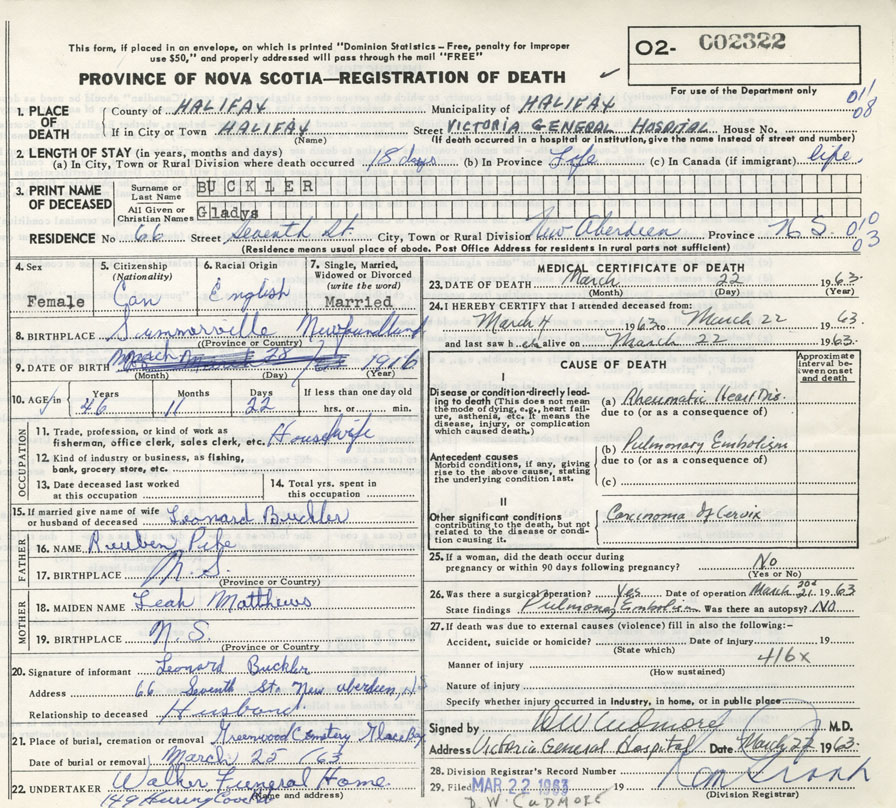 This form, if placed in an envelope, on which is printed "Dominion Statistics – Free, penalty for improper
use $50," and properly addressed will pass through the mail "FREE"
PROVINCE OF NOVA SCOTIA—REGISTRATION OF DEATH
O2- C02322
For use of the Department only
011
08
1. PLACE OF DEATH County of HALIFAX Municipality of HALIFAX
If in City or Town HALIFAX Street VICTORIA GENERAL HOSPITAL House No.
(Name) (If death occurred in a hospital or institution, give the name instead of street and number)
2. LENGTH OF STAY (in years, months and days)
(a) In City, Town or Rural Division where death occurred 18 days (b) In Province Life (c) In Canada (if immigrant) life
3. PRINT NAME OF DECEASED Surname or Last Name BUCKLER
All Given or Christian Names Gladys
RESIDENCE No 66 Street Seventh St. City, Town or Rural Division New Aberdeen Province N.S. 010
03
(Residence means usual place of abode. Post Office Address for residents in rural parts not sufficient)
4. Sex Female
5. Citizenship (Nationality) Can
6. Racial Origin English
7. Single, Married, Widowed or Divorced (write the word) Married
8. BIRTHPLACE Summerville Newfoundland
(Province or Country)
9. DATE OF BIRTH March 1916
(Month) (Day) (Year)
10. AGE in Years 46 Months 11 Days 22 If less than one day old hrs. or min.
OCCUPATION
11. Trade, profession, or kind of work as
fisherman, office clerk, sales clerk, etc. Housewife
12. Kind of industry or business, as fishing,
bank, grocery store, etc.
13. Date deceased last worked at this occupation
14. Total yrs. spent in this occupation
15. If married give name of wife or husband of deceased Leonard Buckler
FATHER
16. NAME Reuben Pife
17. BIRTHPLACE N.S.
(Province or Country)
MOTHER
18. MAIDEN NAME Leah Matthews
19. BIRTHPLACE N.S.
(Province or Country
20. Signature of informant Leonard Buckler
Address 66 Seventh St. New Aberdeen, N.S
Relationship to deceased Husband
21. Place of burial, cremation or removal Greenwood Cemetery Glace Bay
Date of burial or removal March 25 /63
22. UNDERTAKER Walker Funeral Home
149 Herring Cove Rd (Name and address)
MEDICAL CERTIFICATE OF DEATH
23. DATE OF DEATH March 22 1963
(Month) (Day) (Year)
24. I HEREBY CERTIFY that I attended deceased from:
March 4 1963 to March 22 1963
and last saw her alive on March 22 1963
CAUSE OF DEATH
Approximate interval between onset and death
I
Disease or condition directly leading to death (This does not mean the mode of dying, e.g., heart failure, asthenia, etc. It means the disease, injury, or complication which caused death.)
(a) Rheumatic Heart Dis.
due to (or as a consequence of)
Antecedent causes
Morbid conditions, if any, giving rise to the above cause, stating the underlying condition last.
(b) Pulmonary Embolism
due to (or as a consequence of)
(c)
II
Other significant conditions
contributing to the death, but not related to the disease or condition causing it.
Carcinoma of Cervix
25. If a woman, did the death occur during
pregnancy or within 90 days following pregnancy? No
(Yes or No)
26. Was there a surgical operation? Yes Date of operation March 1963
State findings Pulmonary Embolism Was there an autopsy? NO
27. If death was due to external causes (violence) fill in also the following:–
Accident, suicide or homicide? Date of injury 19
(State which)
416x
Manner of injury
(How sustained)
Nature of injury
Specify whether injury occurred in industry, in home, or in public place
Signed by DW Cudmore M.D.
Address Victoria General Hospital Date March 22 1963
28. Division Registrar's Record Number
29. Filed MAR 22 1963 19
(Division Registrar)
D. W. CUDMORE